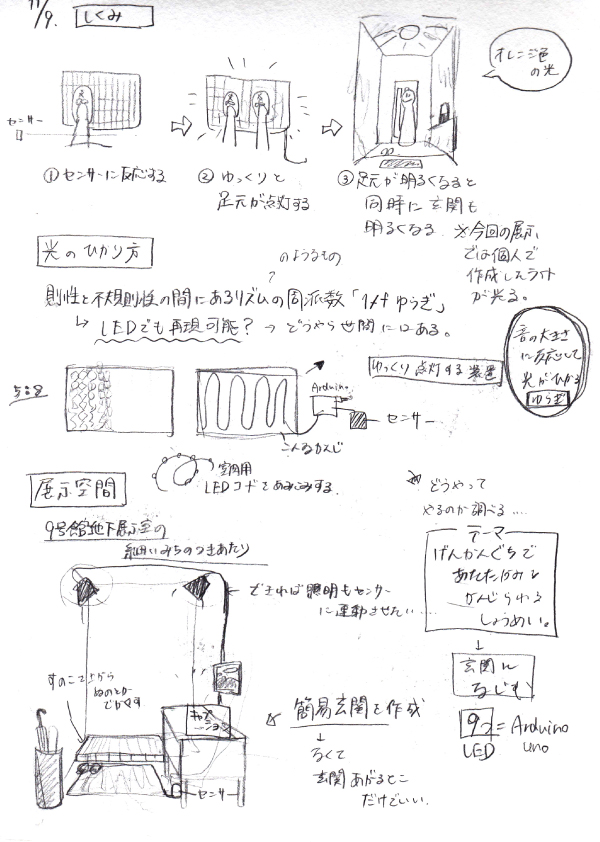 11/9.
しくみ
オレンジ色
の光
センサー
①センサーに反応する
②ゆっくりと
足元が点灯する
③足元が明るくなると
同時に玄関も
明るくなる
※今回の展示
では個人で
作成したライト
が光る。
光のひかり方
のようなもの
?
則性と不規則性の間にあるリズムの周波数「1/fゆらぎ」
↳ LEDでも再現可能?→どうやら世間にはある。
音の大きさ
に反応して
光がひかる
ゆらぎ
ゆっくり点灯する装置
5:8
Arduino
センサー
こんなかんじ
室内用
LEDコードをあみこみする。
展示空間
どうやって
やるのか調べる…
9号館地下展示室の
細いみちのつきあたり
できれば照明もセンサー
に連動させたい…
テーマ
げんかんぐちで
あたたかみを
かんじられる
しょうめい。
↓
玄関に
なじむ
すのこで上から
ぬのとかで
かくす
キャプ
ション
センサー
簡易玄関を作成
↓
玄関あがるとこ
だけでいい。
9コ=Arduino
uno
LED